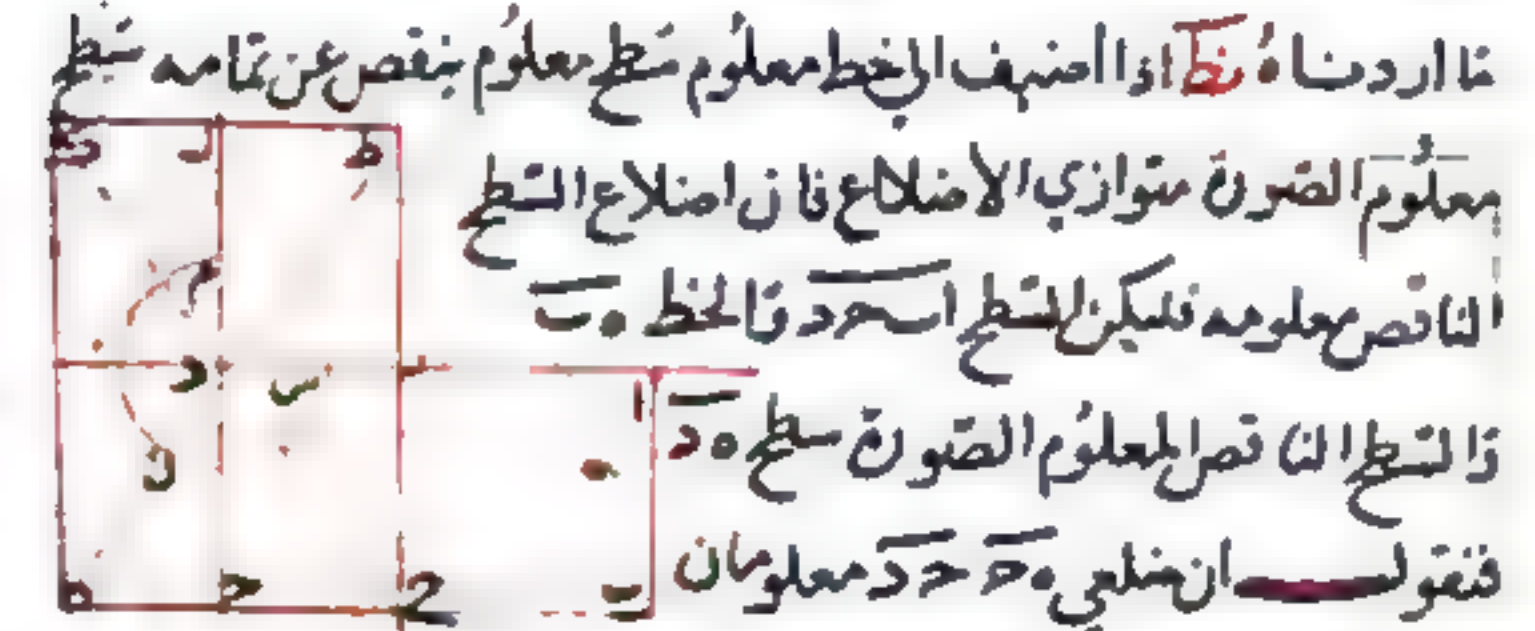 ما اردناه نط اذا اضيف الى خط معلوم سطح معلوم ينقص عن تمامه سطح
معلوم الصورة متوازي الاضلاع فان اضلاع السطح
الناقص معلومه فليكن السطح ا ب ح د والخط ه ب
والسطح الناقص المعلوم الصورة سطح ه د
فنقول ان ضلعي ه ح ح د معلومان
ط ل ك
م
ا س د
ه ن
ب ح ح ه